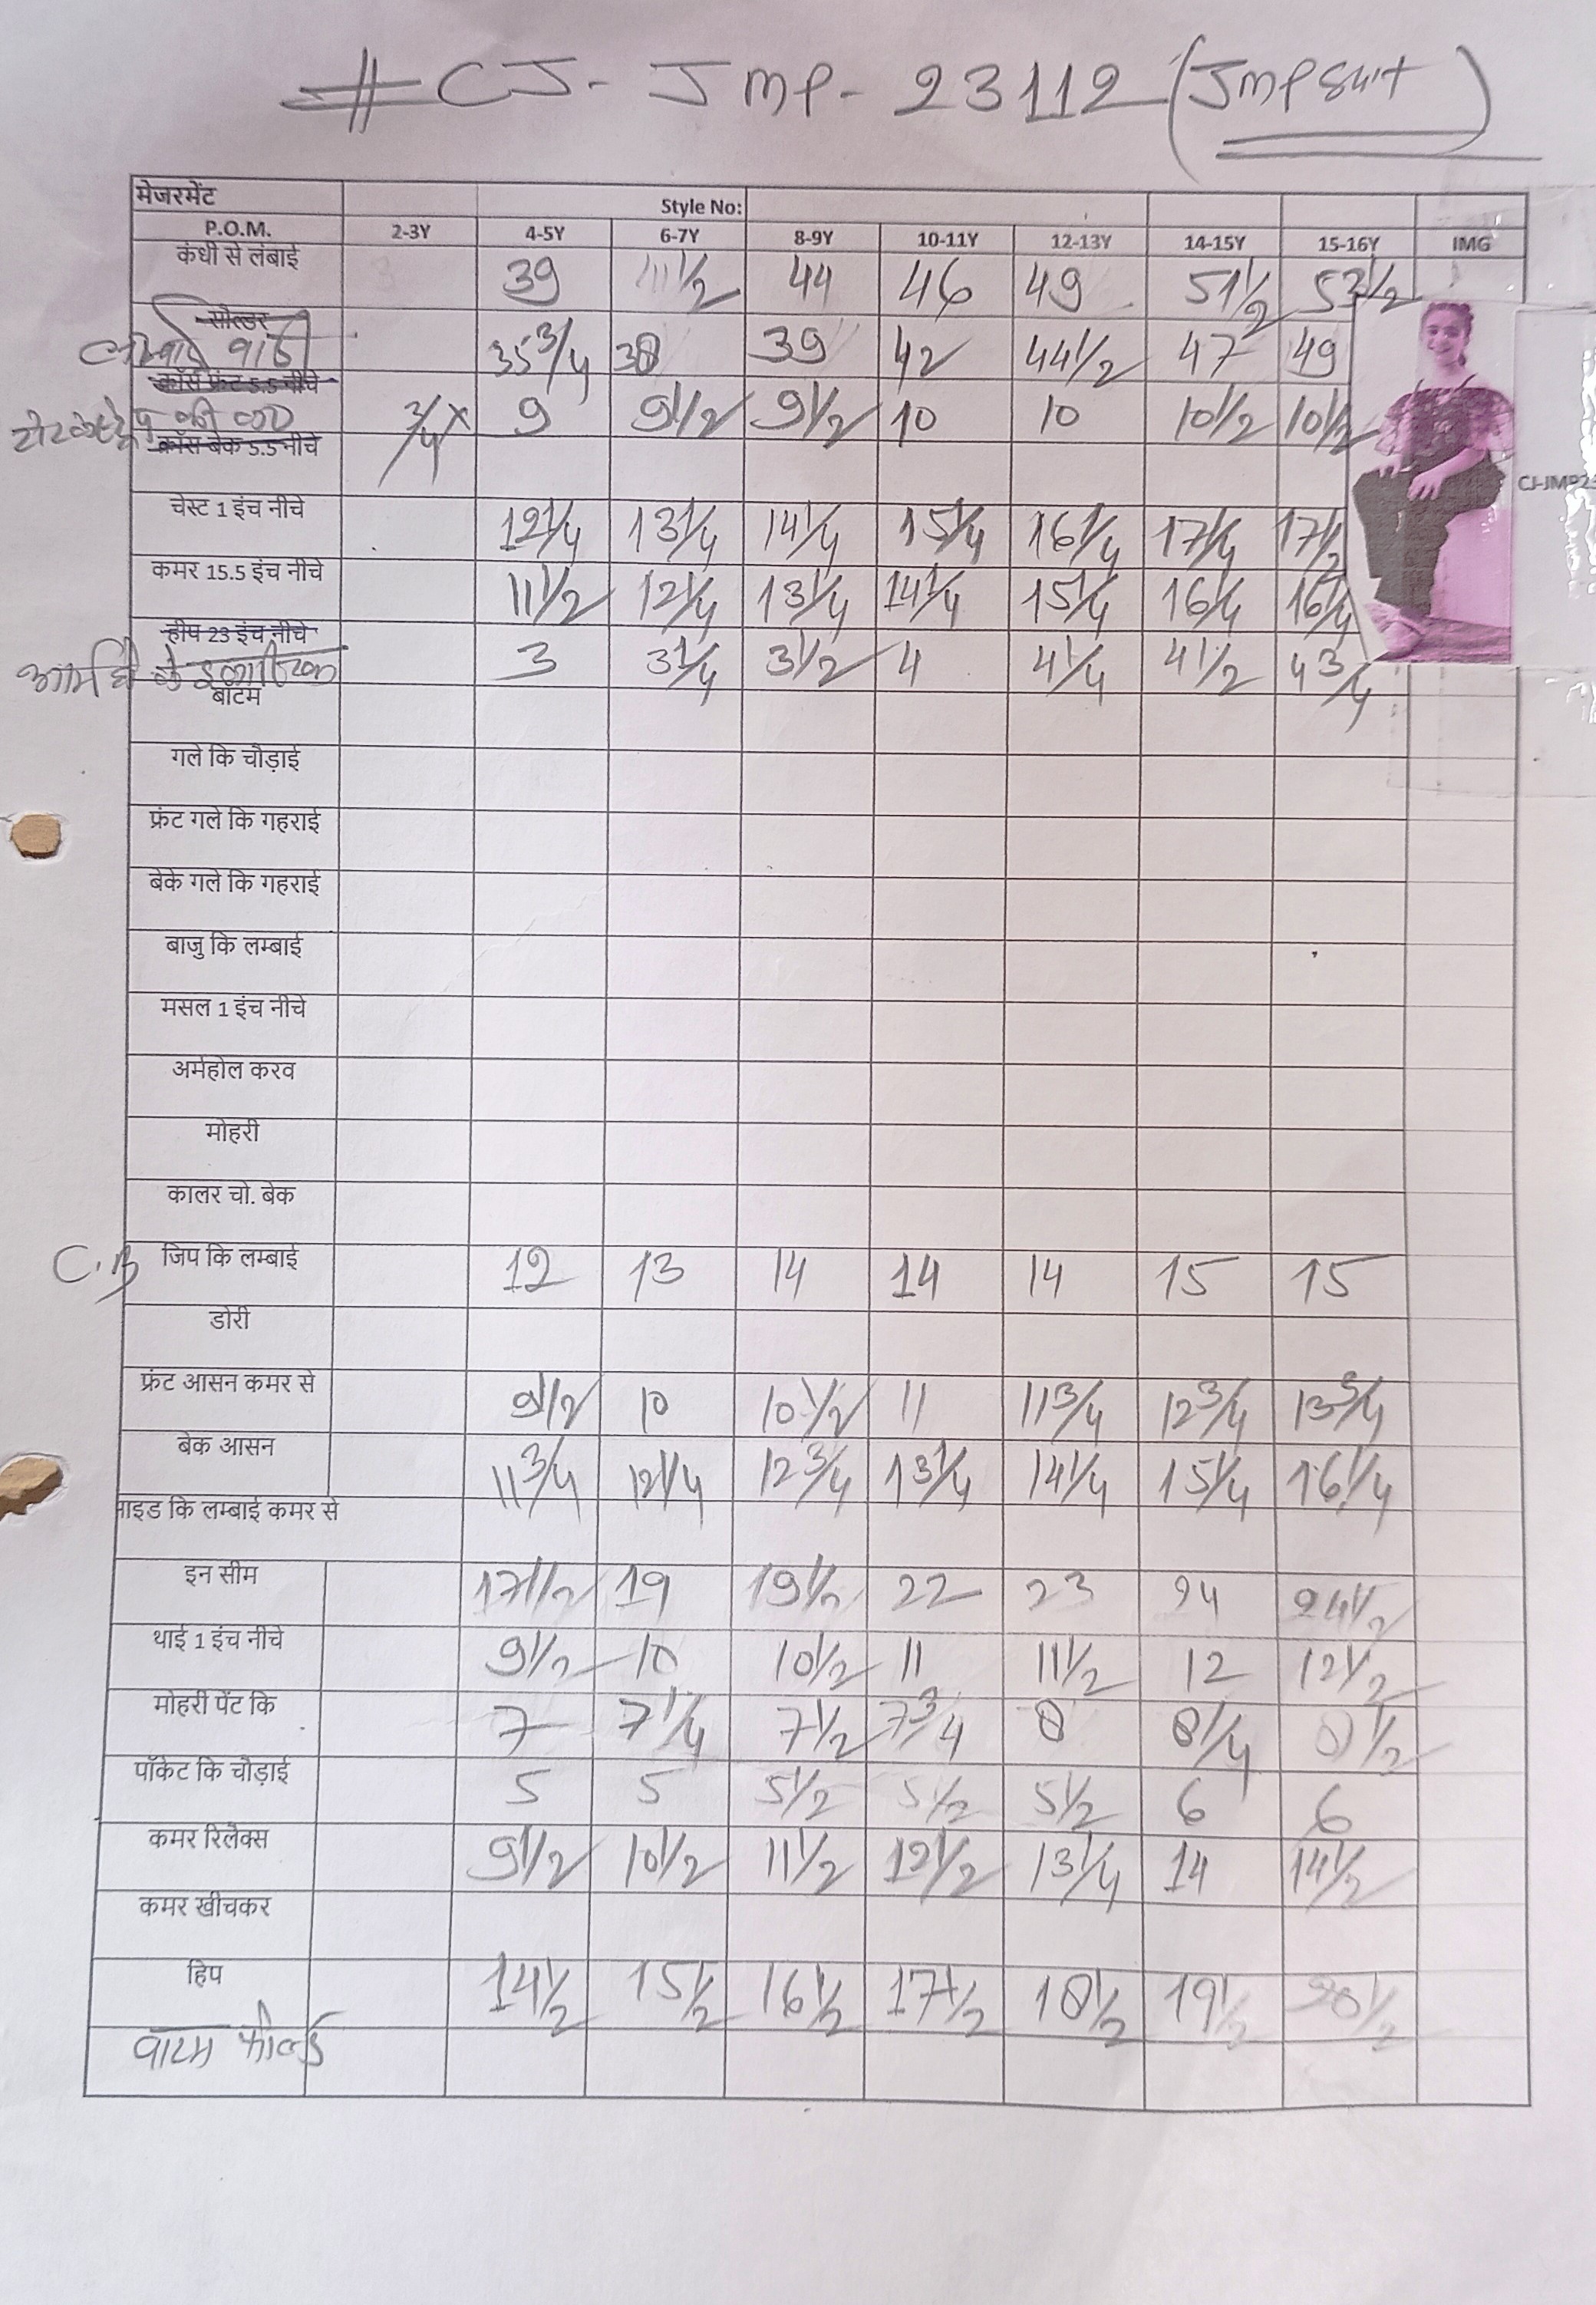 # CJ- Jmp- 23112 (Jmpsuit)
मेजरमेंट Style No:
P.O.M. 2-3Y 4-5Y 6-7Y 8-9Y 10-11Y 12-13Y 14-15Y 15-16Y IMG
कंधी से लंबाई 39 41 1/2 44 46 49 51 1/2 53 1/2
सोल्डर
35 3/4 38 39 42 44 1/2 47 49
क्रॉस फ्रंट 5.5 नीचे
की 3/4 x 9 9 1/2 9 1/2 10 10 10 1/2 10 1/2
क्रॉस बेक 5.5 नीचे
CJ-JMP23
चेस्ट 1 इंच नीचे 12 1/4 13 1/4 14 1/4 15 1/4 16 1/4 17 1/4 17 1/2
कमर 15.5 इंच नीचे 11 1/2 12 1/4 13 1/4 14 1/4 15 1/4 16 1/4 16 1/4
हीप 23 इंच नीचे
3 3 1/4 3 1/2 4 4 1/4 4 1/2 4 3/4
बाटम
गले कि चौड़ाई
फ्रंट गले कि गहराई
बेके गले कि गहराई
बाजु कि लम्बाई
मसल 1 इंच नीचे
अर्महोल करव
मोहरी
कालर चो. बेक
C.B जिप कि लम्बाई 12 13 14 14 14 15 15
डोरी
फ्रंट आसन कमर से 9 1/2 10 10 1/2 11 11 3/4 12 3/4 13 3/4
बेक आसन 11 3/4 12 1/4 12 3/4 13 1/4 14 1/4 15 1/4 16 1/4
साइड कि लम्बाई कमर से
इन सीम 17 1/2 19 19 1/2 22 23 24 24 1/2
थाई 1 इंच नीचे 9 1/2 10 10 1/2 11 11 1/2 12 12 1/2
मोहरी पेंट कि 7 7 1/4 7 1/2 7 3/4 8 8 1/4 8 1/2
पॉकेट कि चौड़ाई 5 5 5 1/2 5 1/2 5 1/2 6 6
कमर रिलेक्स 9 1/2 10 1/2 11 1/2 12 1/2 13 1/4 14 14 1/2
कमर खीचकर
हिप 14 1/2 15 1/2 16 1/2 17 1/2 18 1/2 19 1/2 20 1/2
वाटम फोल्ड